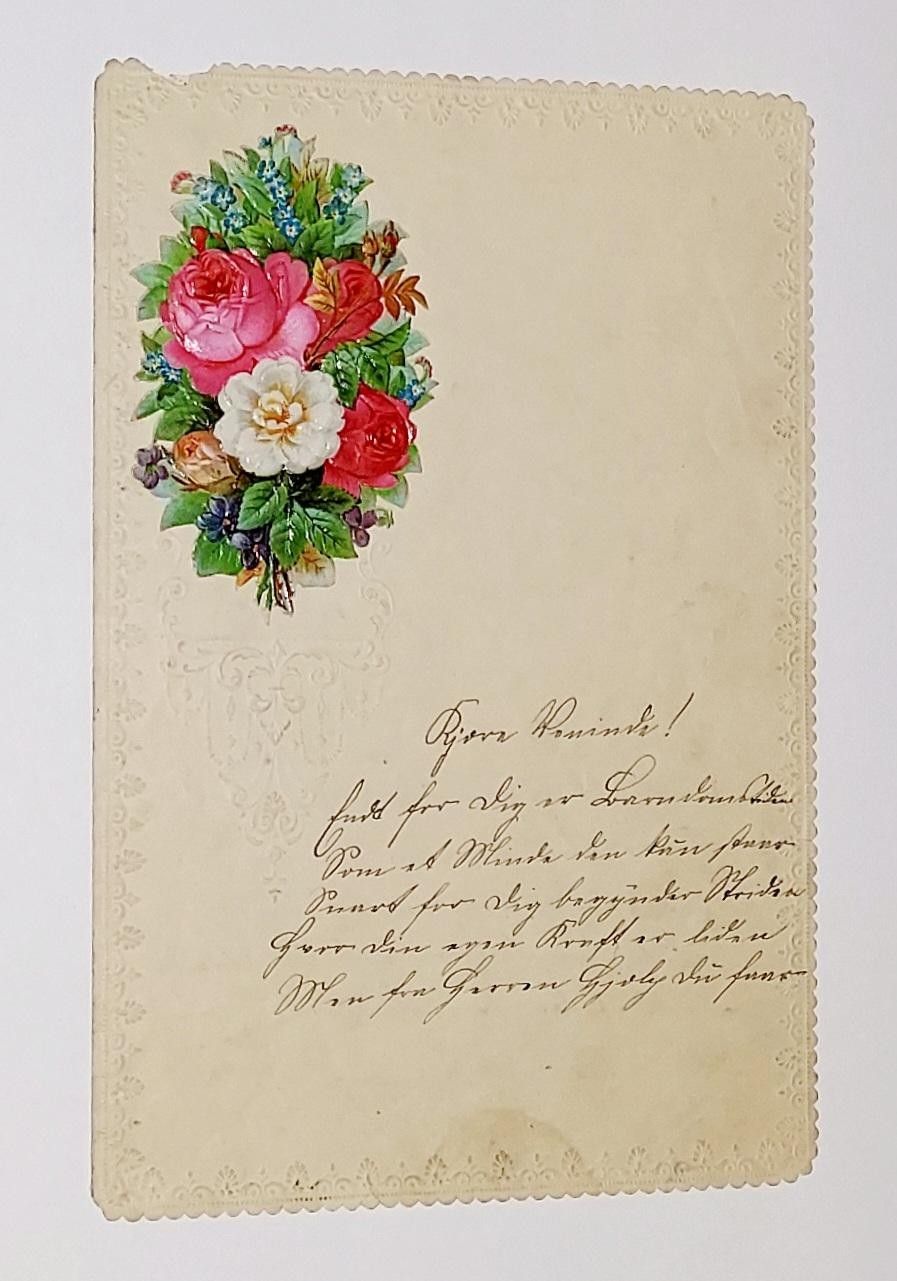 Kjære Veninde!
Endt for Dig er Barndomstiden
Som et Minde den kun staar
Snart for Dig begynder Striden
Hvor din egen Kraft er liden
Men fra Herren Hjælp Du faar